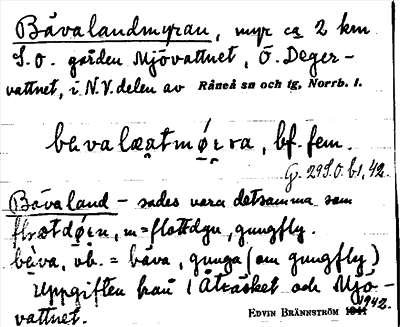 Bävalandmyran, myr ca 2 km
S.O. gården Mjövattnet, Ö. Deger-
vattnet, i N.V. delen av Råneå sn och tg, Norrb. l.
bf. fem.
G. 29 S.O. b1, 42.
Bävaland - sades vara detsamma som
m = flottdyn, gungfly.
vb. = bäva, gunga (om gungfly)
Uppgiften från Åträsket och Mjö-
vattnet. 1942.
EDVIN BRÄNNSTRÖM 1941